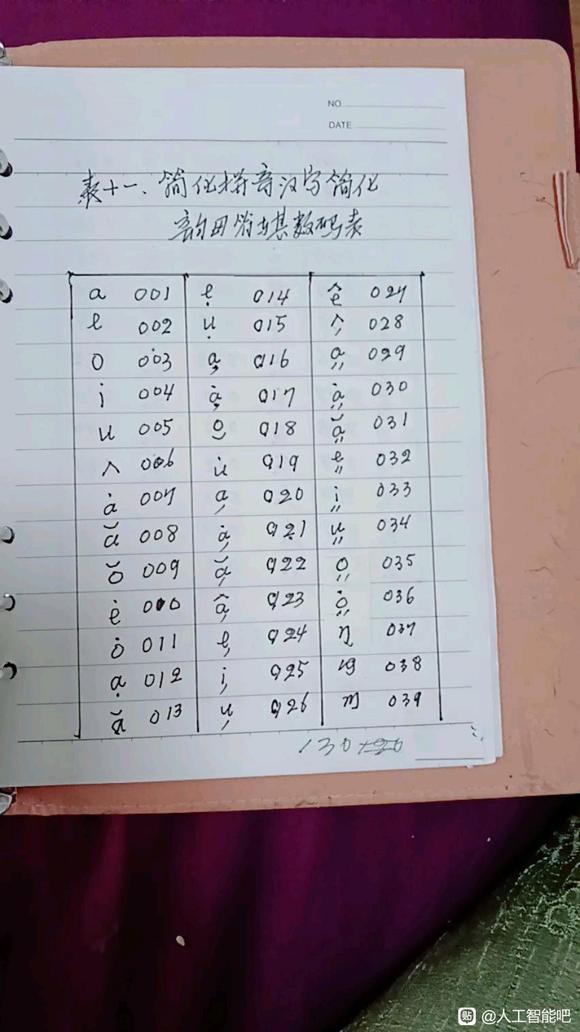 NO
DATE
表十一、简化拼音汉字简化
韵母简与其数码表
a 001 ẹ 014 ê̤ 027
e 002 ụ 015 ^, 028
o 003 a̤ 016 a̤ 029
i 004 ȧ 017 ȧ̤ 030
u 005 o̮ 018 ă̤ 031
^ 006 u̇ 019 e̤ 032
ȧ 007 a̗ 020 i̤ 033
ă 008 ȧ̗ 021 ṳ 034
ŏ 009 ă̗ 022 o̤ 035
ė 010 â̗ 023 ȯ̤ 036
ȯ 011 e̗ 024 η 037
ạ 012 i̗ 025 038
ặ 013 u̗ 026 m 039
130
@人工智能吧